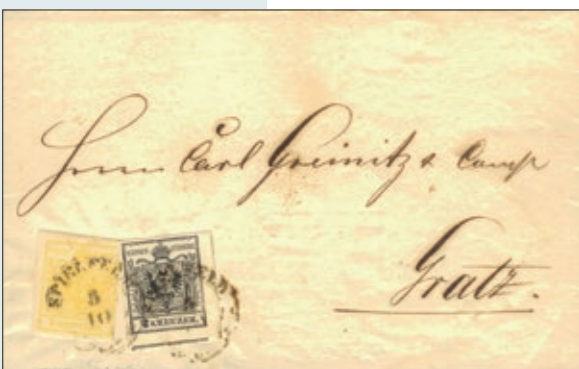 Herrn Carl Greinitz & Comp
Gratz.
SPIELFELD
5
10
2 KREUZER